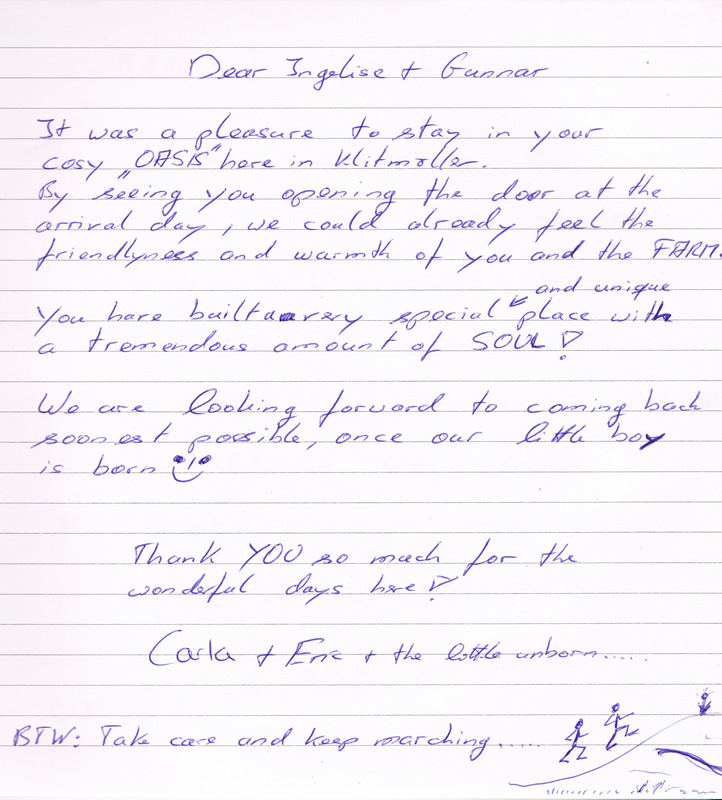 Dear Ingelise + Gunnar
It was a pleasure to stay in your
cosy „OASIS" here in Klitmøller.
By seeing you opening the door at the
arrival day, we could already feel the
friendlyness and warmth of you and the FARM.
and unique
You have built a very special place with
a tremendous amount of SOUL!
We are looking forward to coming back
soonest possible, once our little boy
is born
Thank YOU so much for the
wonderful days here!
Carla + Eric + the little unborn.....
BTW: Take care and keep marching.....